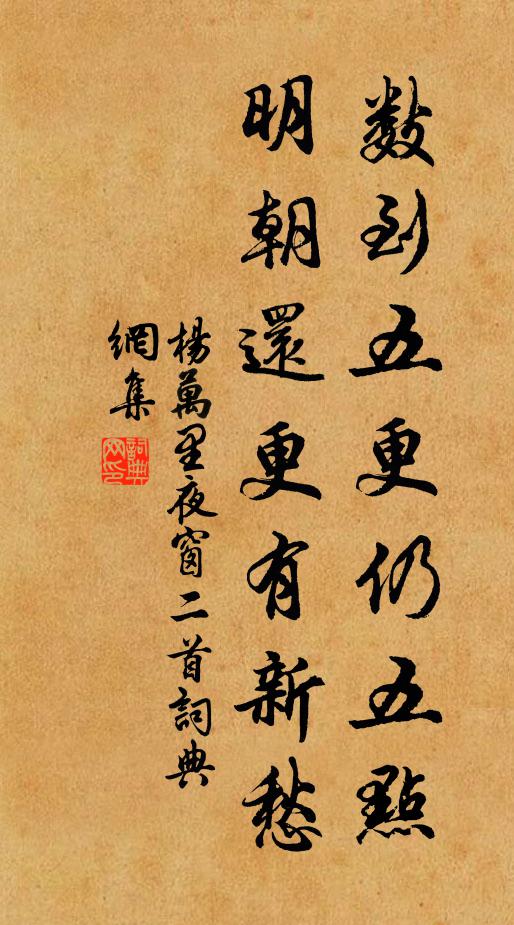 數到五更仍五點
明朝還更有新愁
楊萬里夜窗二首詞典
網集
詞典
网印